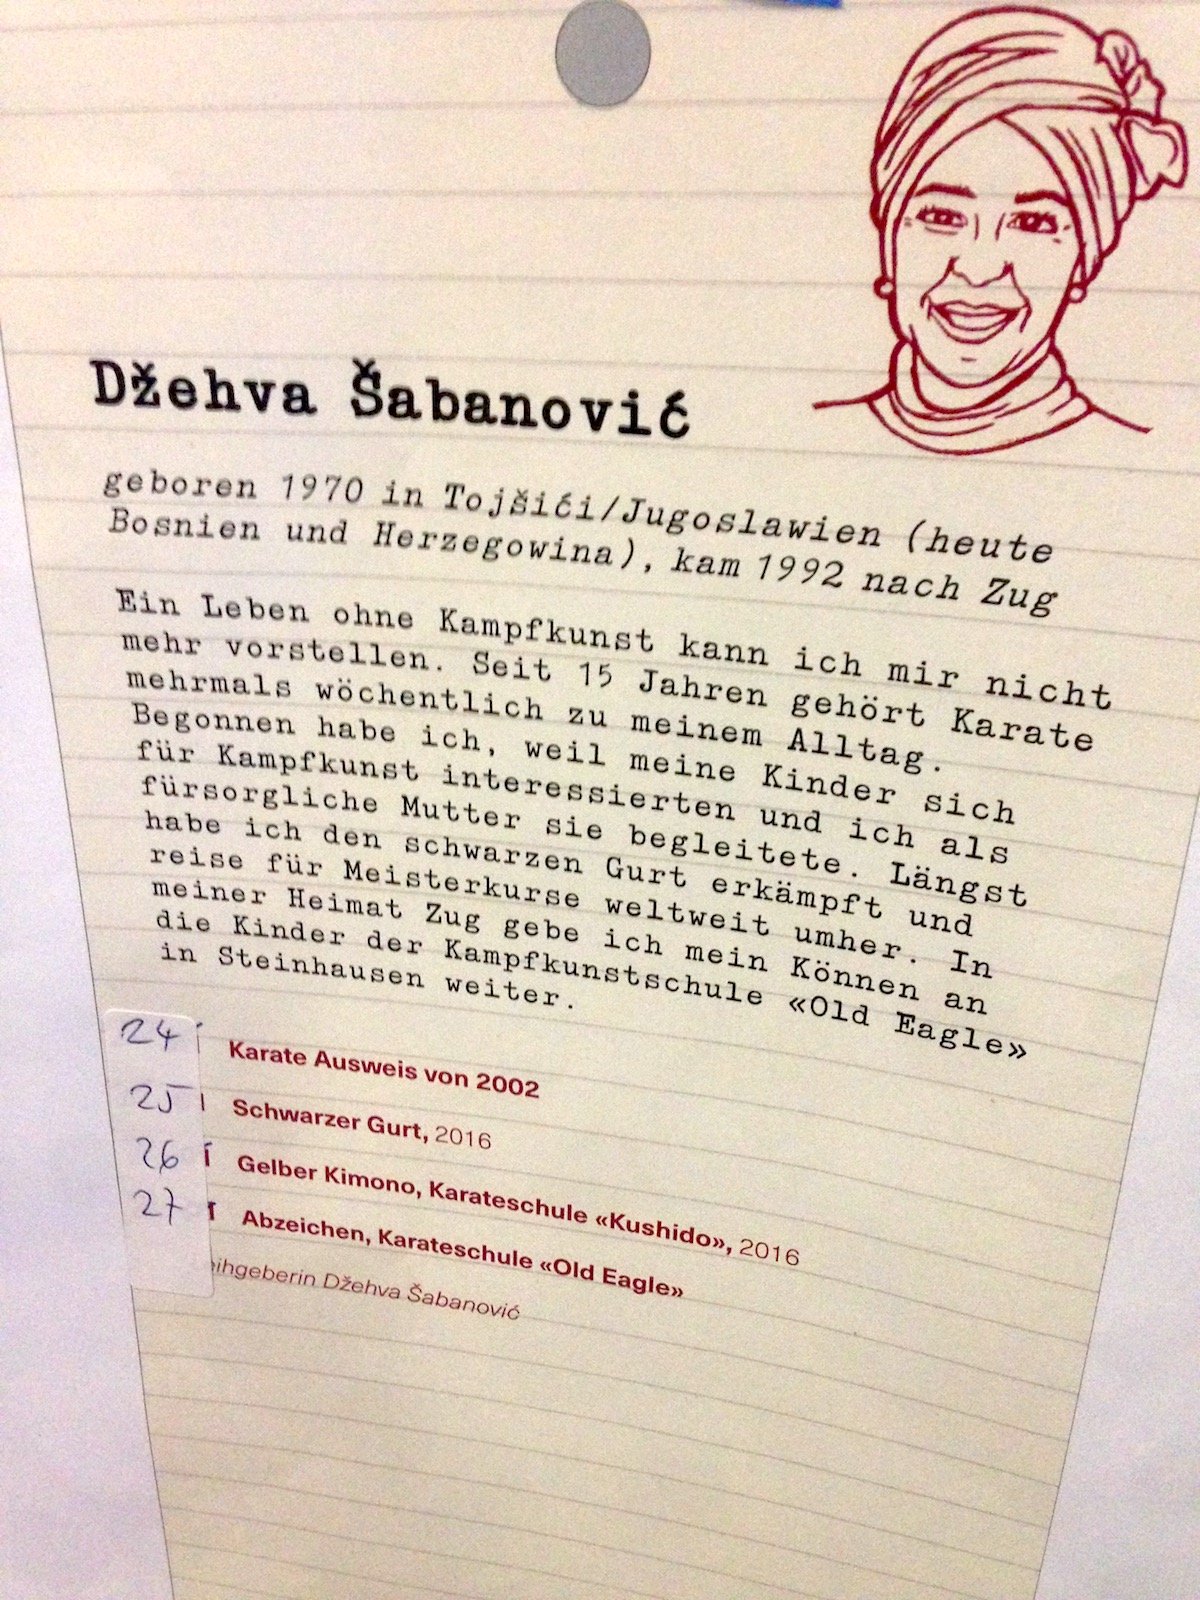 Džehva Šabanović
geboren 1970 in Tojšići/Jugoslawien (heute
Bosnien und Herzegowina), kam 1992 nach Zug
Ein Leben ohne Kampfkunst kann ich mir nicht
mehr vorstellen. Seit 15 Jahren gehört Karate
mehrmals wöchentlich zu meinem Alltag.
Begonnen habe ich, weil meine Kinder sich
für Kampfkunst interessierten und ich als
fürsorgliche Mutter sie begleitete. Längst
habe ich den schwarzen Gurt erkämpft und
reise für Meisterkurse weltweit umher. In
meiner Heimat Zug gebe ich mein Können an
die Kinder der Kampfkunstschule «Old Eagle»
in Steinhausen weiter.
24 Karate Ausweis von 2002
25 Schwarzer Gurt, 2016
26 Gelber Kimono, Karateschule «Kushido», 2016
27 Abzeichen, Karateschule «Old Eagle»
Džehva Šabanović